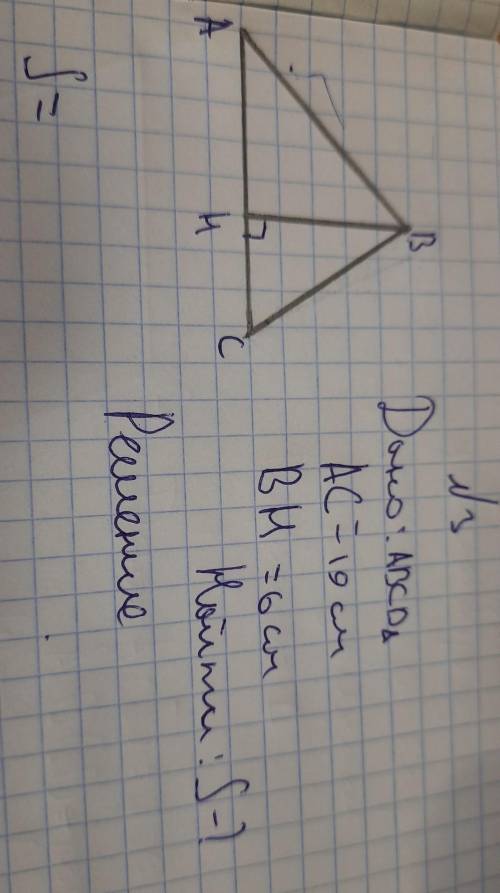 №3
Дано: ABCD Δ
AC = 19 см
BH = 6 см
Найти: S - ?
Решение
A
B
H
C
S =